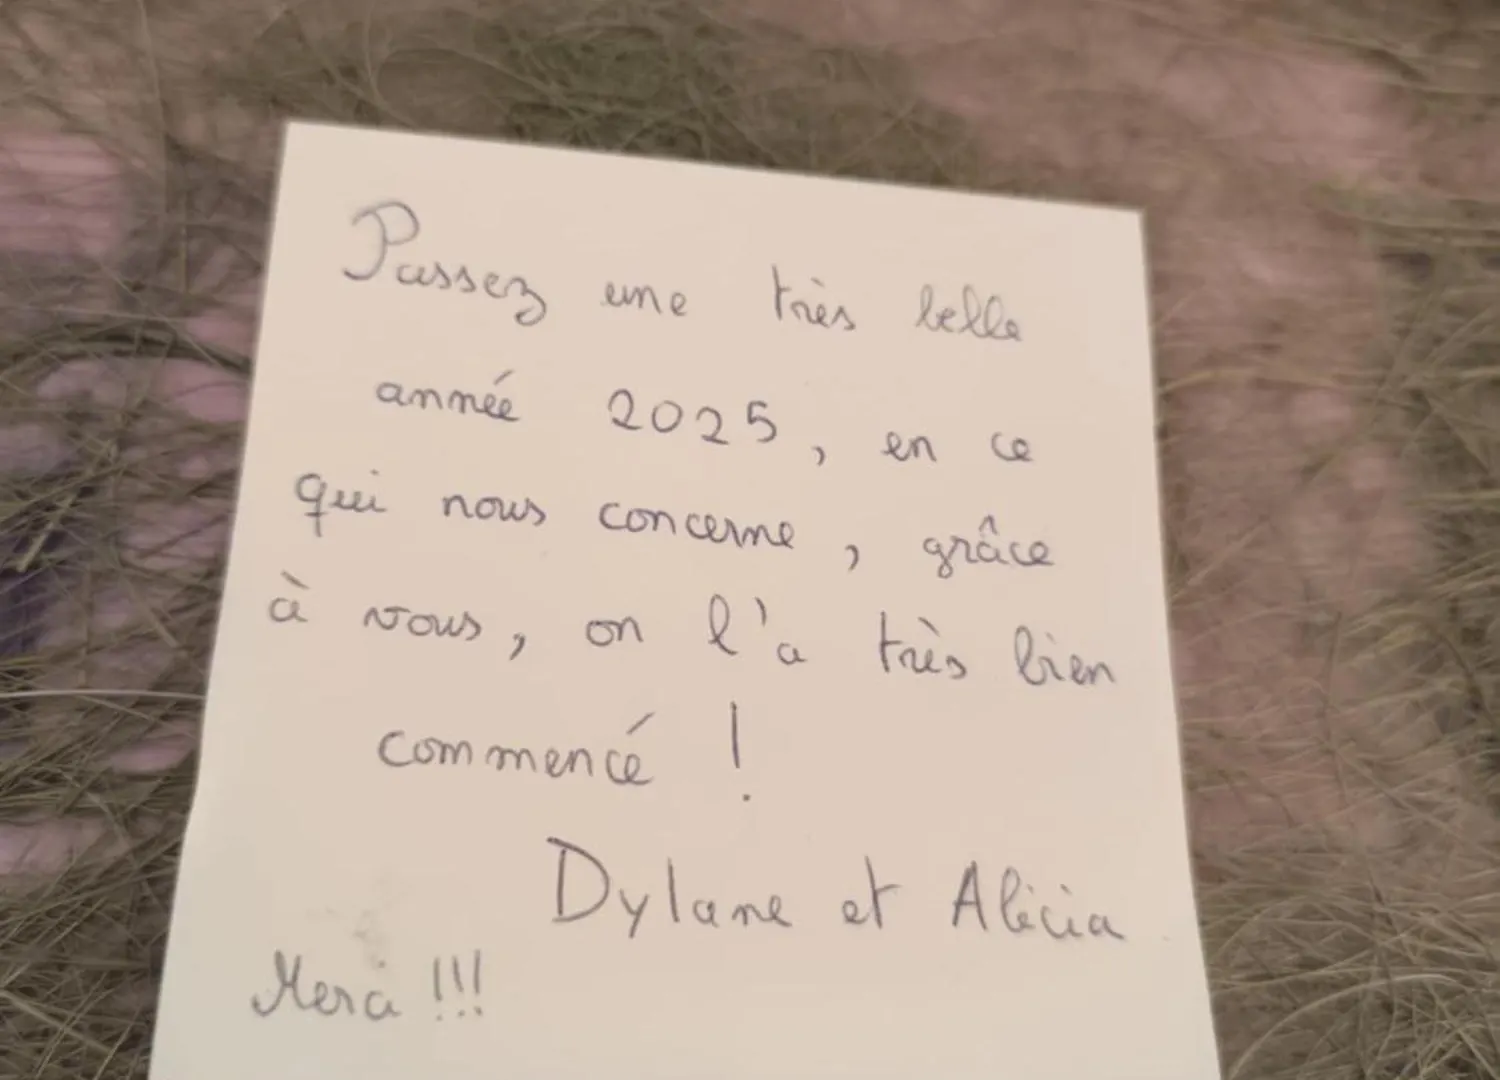 Passez une très belle
année 2025, en ce
qui nous concerne, grâce
à vous, on l'a très bien
commencé !
Dylane et Alicia
Merci !!!